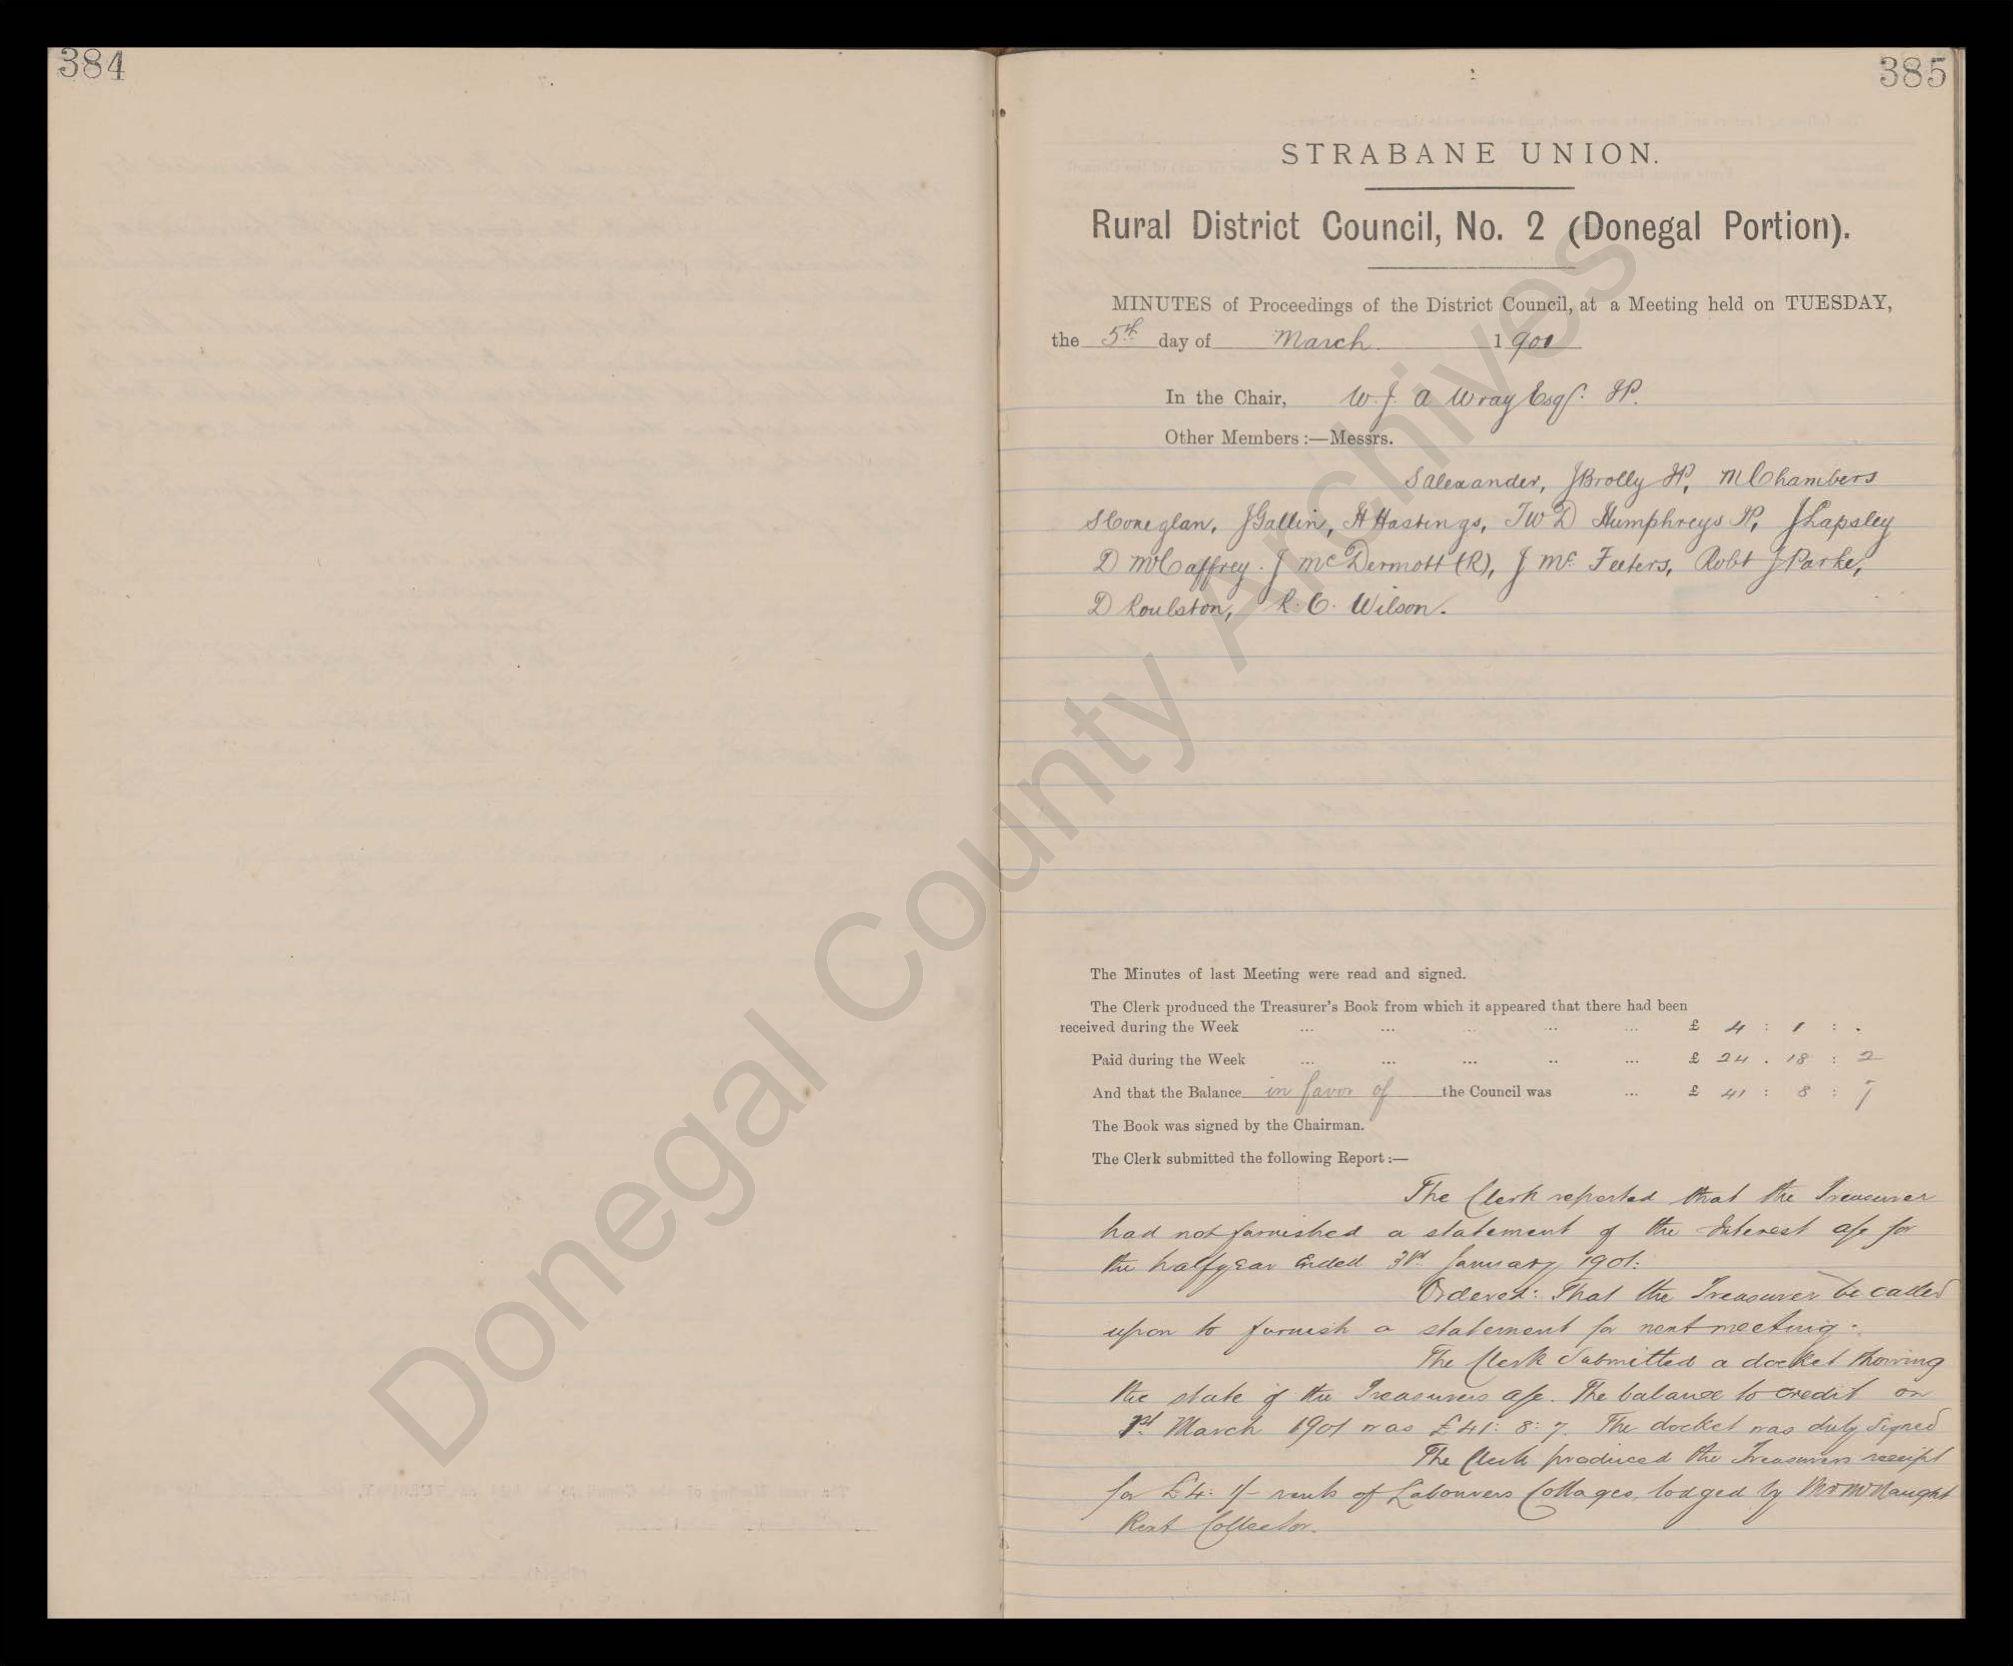 384
385
STRABANE UNION.
Rural District Council, No. 2 (Donegal Portion).
MINUTES of Proceedings of the District Council, at a Meeting held on TUESDAY,
the 5th day of March 1901
In the Chair, W. J. A Wray Esqr. JP.
Other Members :—Messrs.
S Alexander, J Brolly JP, M Chambers
S Coneglan, J Gallin, H Hastings, TWD Humphreys JP, J Lapsley
D McCaffrey. J McDermott (R), J Mc Feeters, Robt J Parke,
D Roulston, R. C. Wilson.
The Minutes of last Meeting were read and signed.
The Clerk produced the Treasurer's Book from which it appeared that there had been
received during the Week ... ... ... ... ... £ 4 : 1 : .
Paid during the Week ... ... ... ... ... £ 24 . 18 : 2
And that the Balance in favor of the Council was ... £ 41 : 8 : 7
The Book was signed by the Chairman.
The Clerk submitted the following Report :—
The Clerk reported that the Treasurer
had not furnished a statement of the Interest a/c for
the halfyear ended 31st January 1901.
Ordered: That the Treasurer be called
upon to furnish a statement for next meeting.
The Clerk submitted a docket showing
the state of the Treasurers a/c. The balance to credit on
1st March 1901 was £41: 8: 7. The docket was duly signed
The Clerk produced the Treasurers receipt
for £4: 1/- rents of Labourers Cottages, lodged by Mr McNaught
Rent Collector.
Donegal County Archives